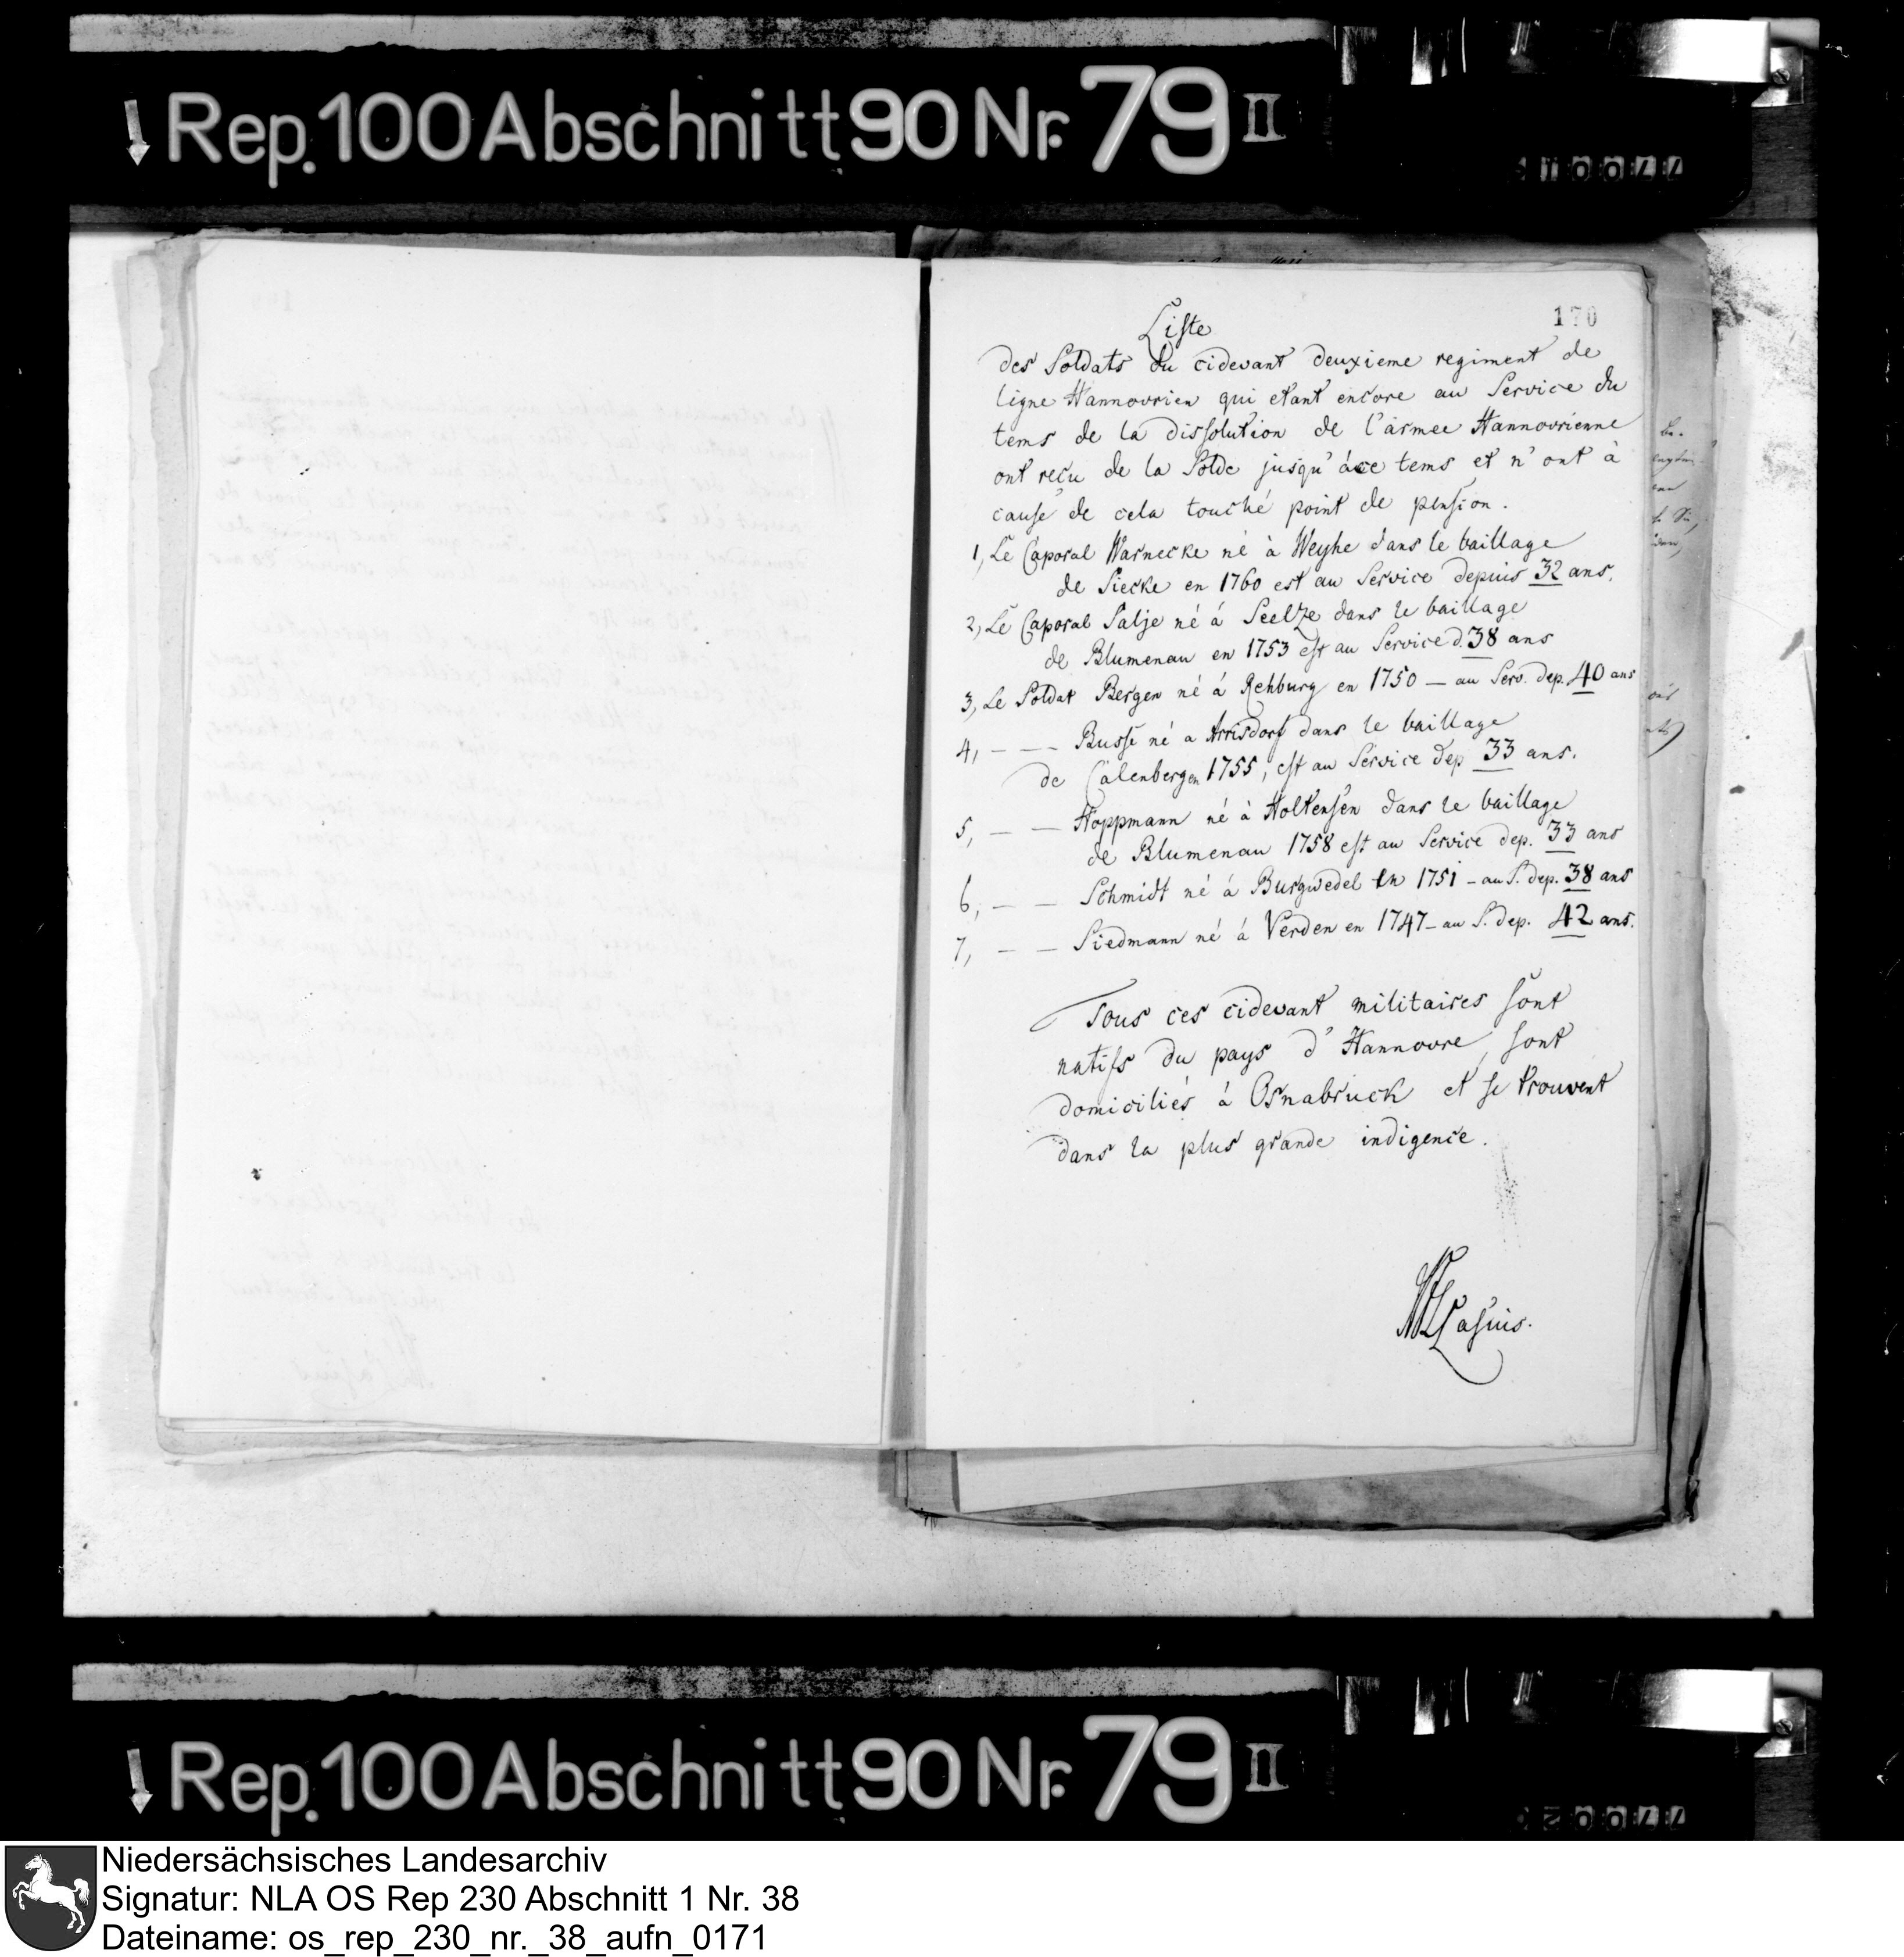 Rep. 100 Abschnitt 90 Nr. 79 II
170
Liste
des Soldats du cidevant deuxieme regiment de
ligne Hannovrien qui etant encore au Service du
tems de la dissolution de l'armee Hannovrienne
ont reçu de la Solde jusqu' à ce tems et n' ont à
cause de cela touché point de pension.
1, Le Caporal Warnecke né à Weyhe dans le baillage
de Siecke en 1760 est au Service depuis 32 ans.
2, Le Caporal Salje né á Seelze dans le baillage
de Blumenau en 1753 est au Service d. 38 ans
3, Le Soldat Bergen né á Rehburg en 1750 — au Serv. dep. 40 ans
4, — — Busse né a Arrisdorf dans le baillage
de Calenberg en 1755, est au Service dep 33 ans.
5, — — Hoppmann né à Holtensen dans le baillage
de Blumenau 1758 est au Service dep. 33 ans
6, — — Schmidt né á Burgwedel en 1751 – au S. dep. 38 ans
7, — — Siedmann né á Verden en 1747 – au S. dep. 42 ans.
Tous ces cidevant militaires sont
natifs du pays d' Hannovre, sont
domiciliés á Osnabruck et se trouvent
dans la plus grande indigence.
Lasius.
Rep. 100 Abschnitt 90 Nr. 79 II
Niedersächsisches Landesarchiv
Signatur: NLA OS Rep 230 Abschnitt 1 Nr. 38
Dateiname: os_rep_230_nr._38_aufn_0171